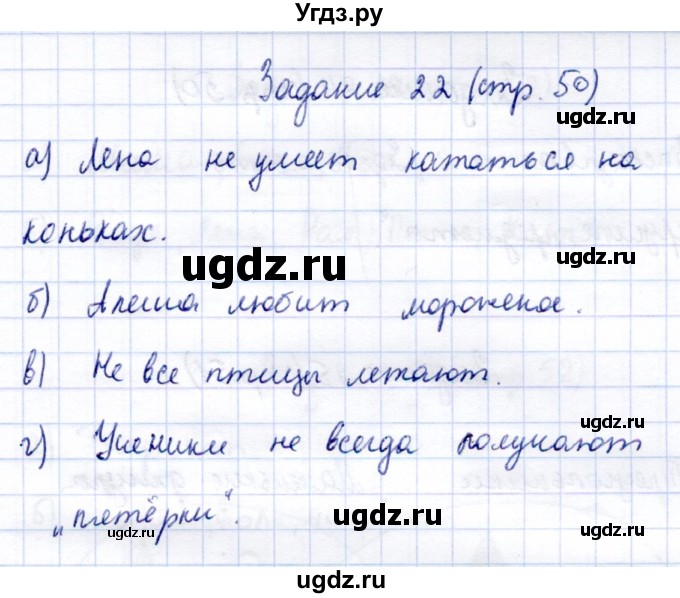 Угдз.ру
Задание 22 (стр. 50)
ugdz.ru
а) Лена не умеет кататься на
коньках.
ugdz.ru
ugdz.ru
б) Алеша любит мороженое.
в) Не все птицы летают.
г) Ученики не всегда получают
ugdz.ru
"пятёрки".
ugdz.ru
ugdz.ru
ugdz.ru
ugdz.ru